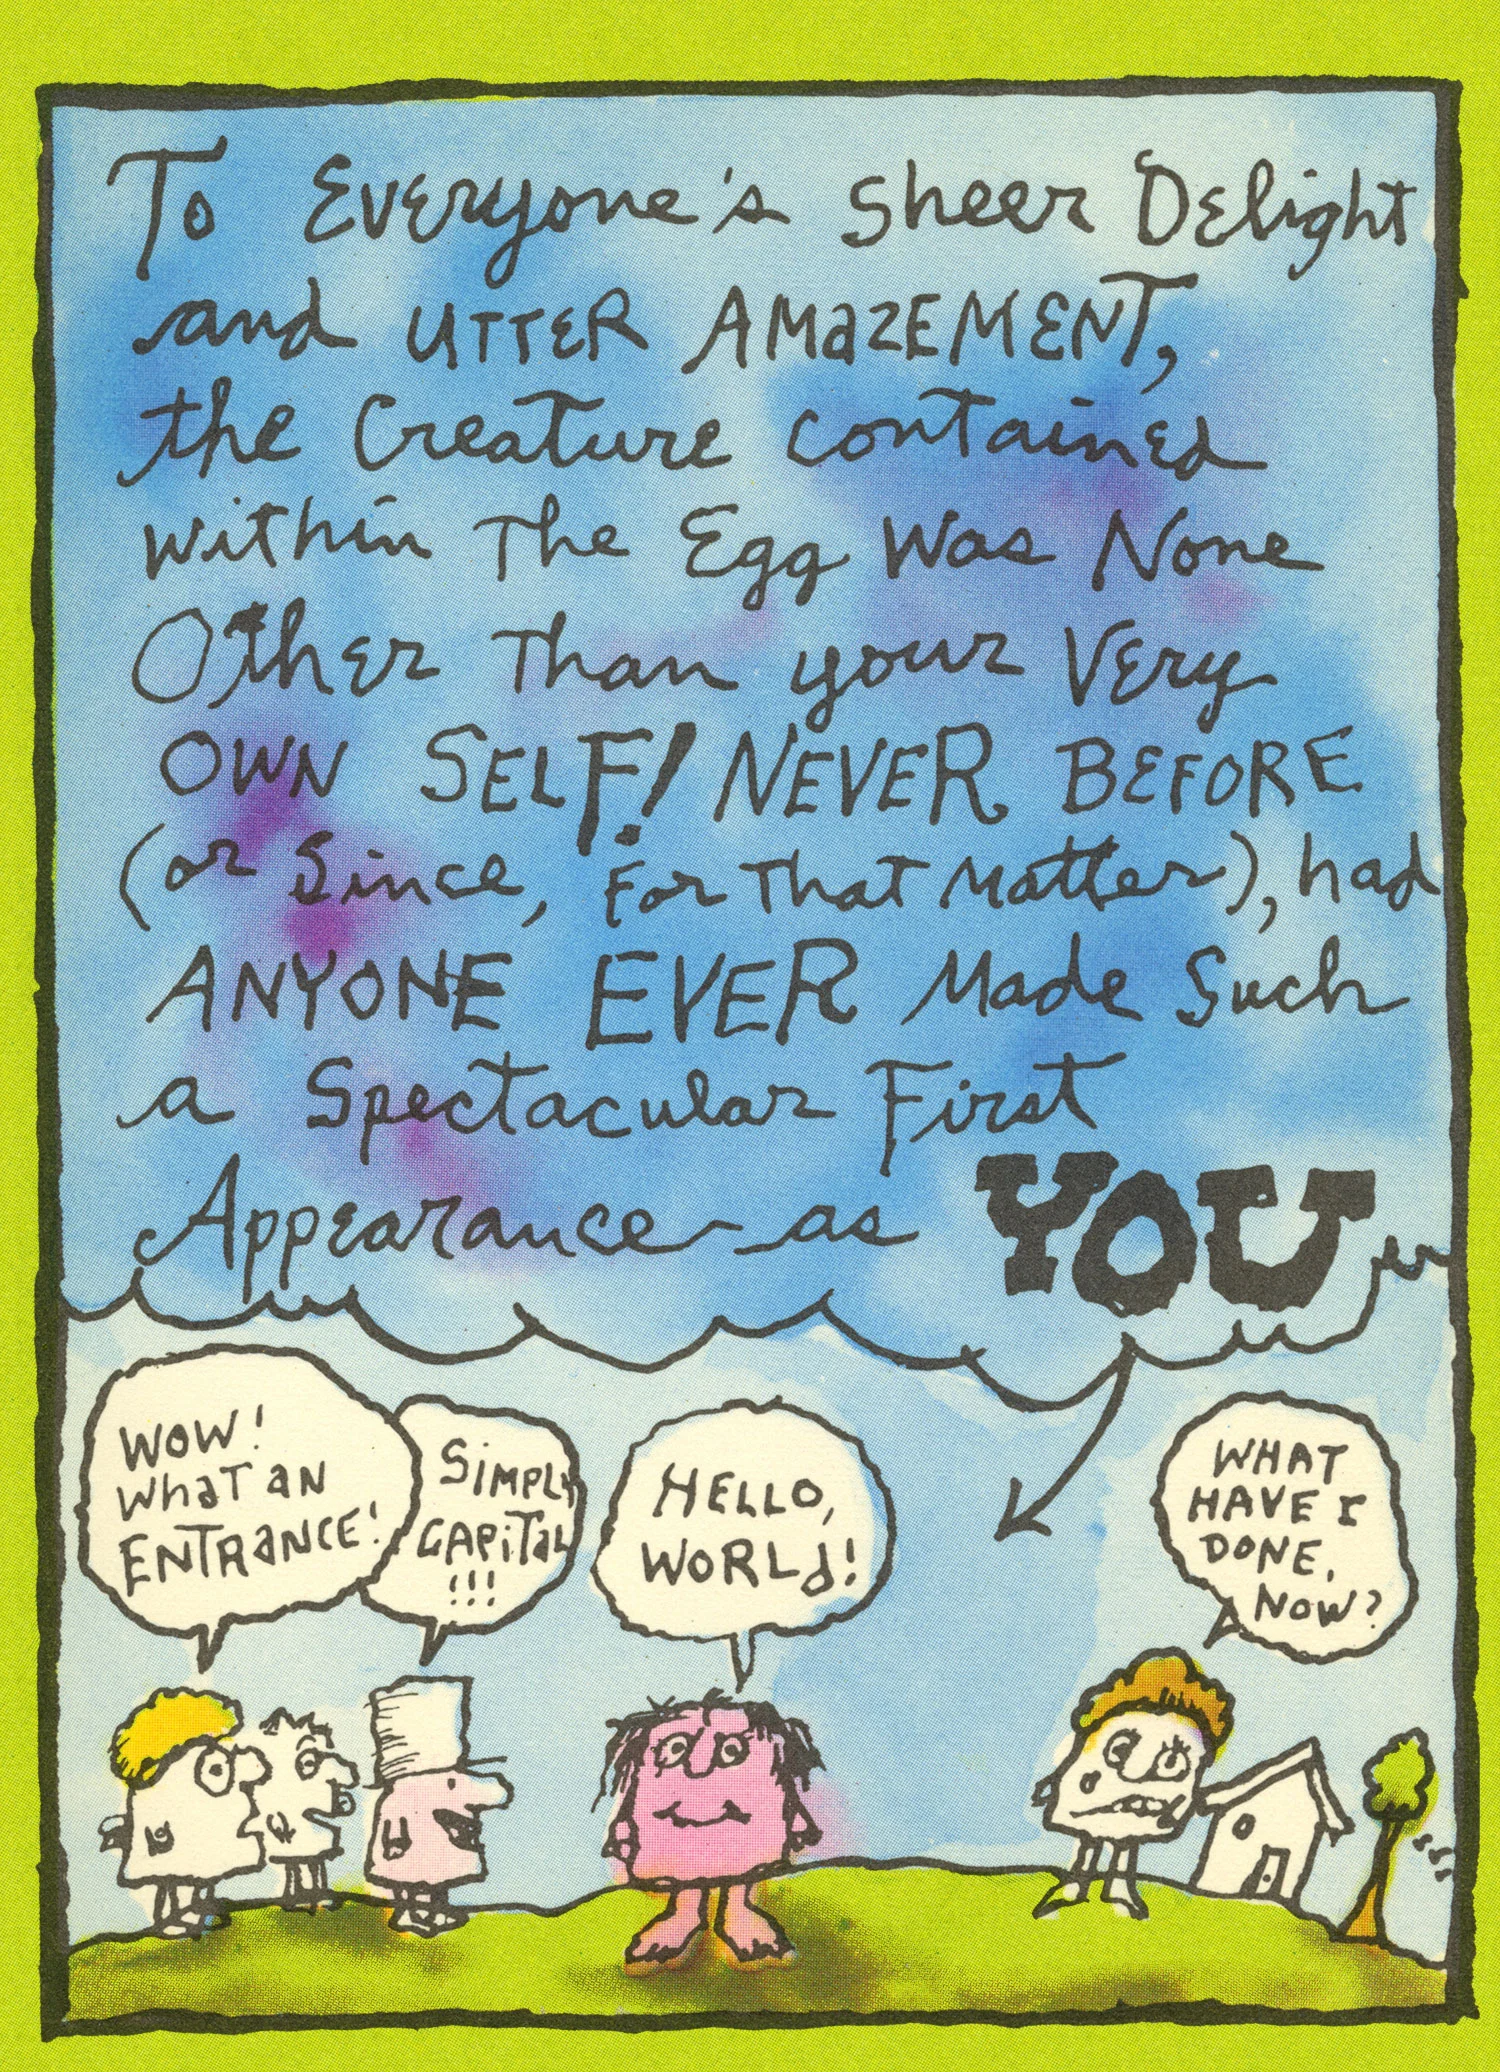 To Everyone's Sheer Delight
and UTTER AMAZEMENT,
the Creature contained
within The Egg Was None
Other Than your Very
OWN SELF! NEVER BEFORE
(or Since, For That Matter), had
ANYONE EVER Made Such
a Spectacular First
Appearance - as YOU
WOW!
WHAT AN
ENTRANCE!
SIMPLY
CAPITAL
!!!
HELLO,
WORLD!
WHAT
HAVE I
DONE,
NOW?